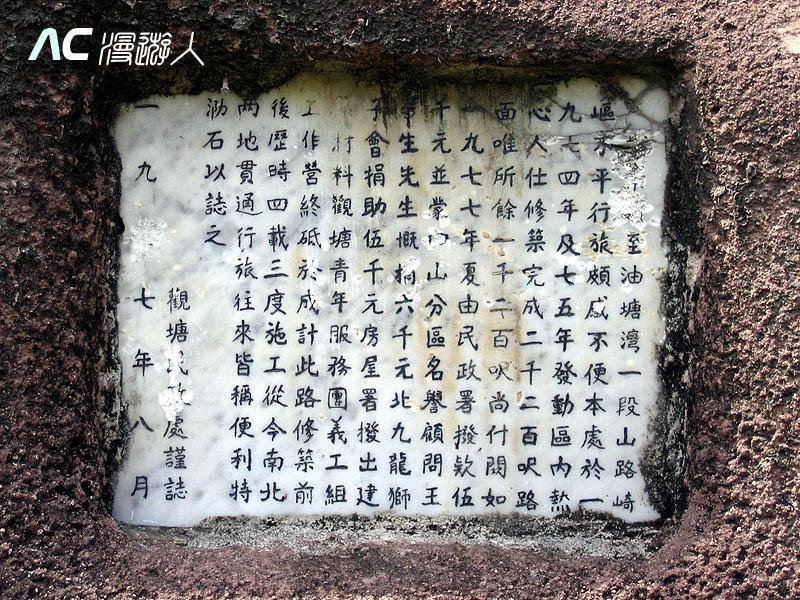 AC漫遊人
至油塘灣一段山路崎
嶇不平行旅頗感不便本處於一
九七四年及七五年發動區內熱
心人仕修築完成二千二百呎路
面唯所餘一千二百呎尚付闕如
一九七七年夏由民政署撥欵伍
千元並蒙山分區名譽顧問王
生先生慨捐六千元北九龍獅
子會捐助伍千元房屋署撥出建
材料觀塘青年服務團義工組
工作營終砥於成計此路修築前
後歷時四載三度施工從今南北
兩地貫通行旅往來皆稱便利特
泐石以誌之
觀塘民政處謹誌
一九七年八月